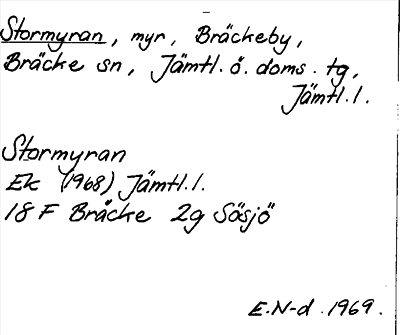 Stormyran, myr, Bräckeby,
Bräcke sn, Jämtl. ö. doms. tg,
Jämtl. l.
Stormyran
Ek (1968) Jämtl. l.
18 F Bräcke 2g Sösjö
E.N-d. 1969.